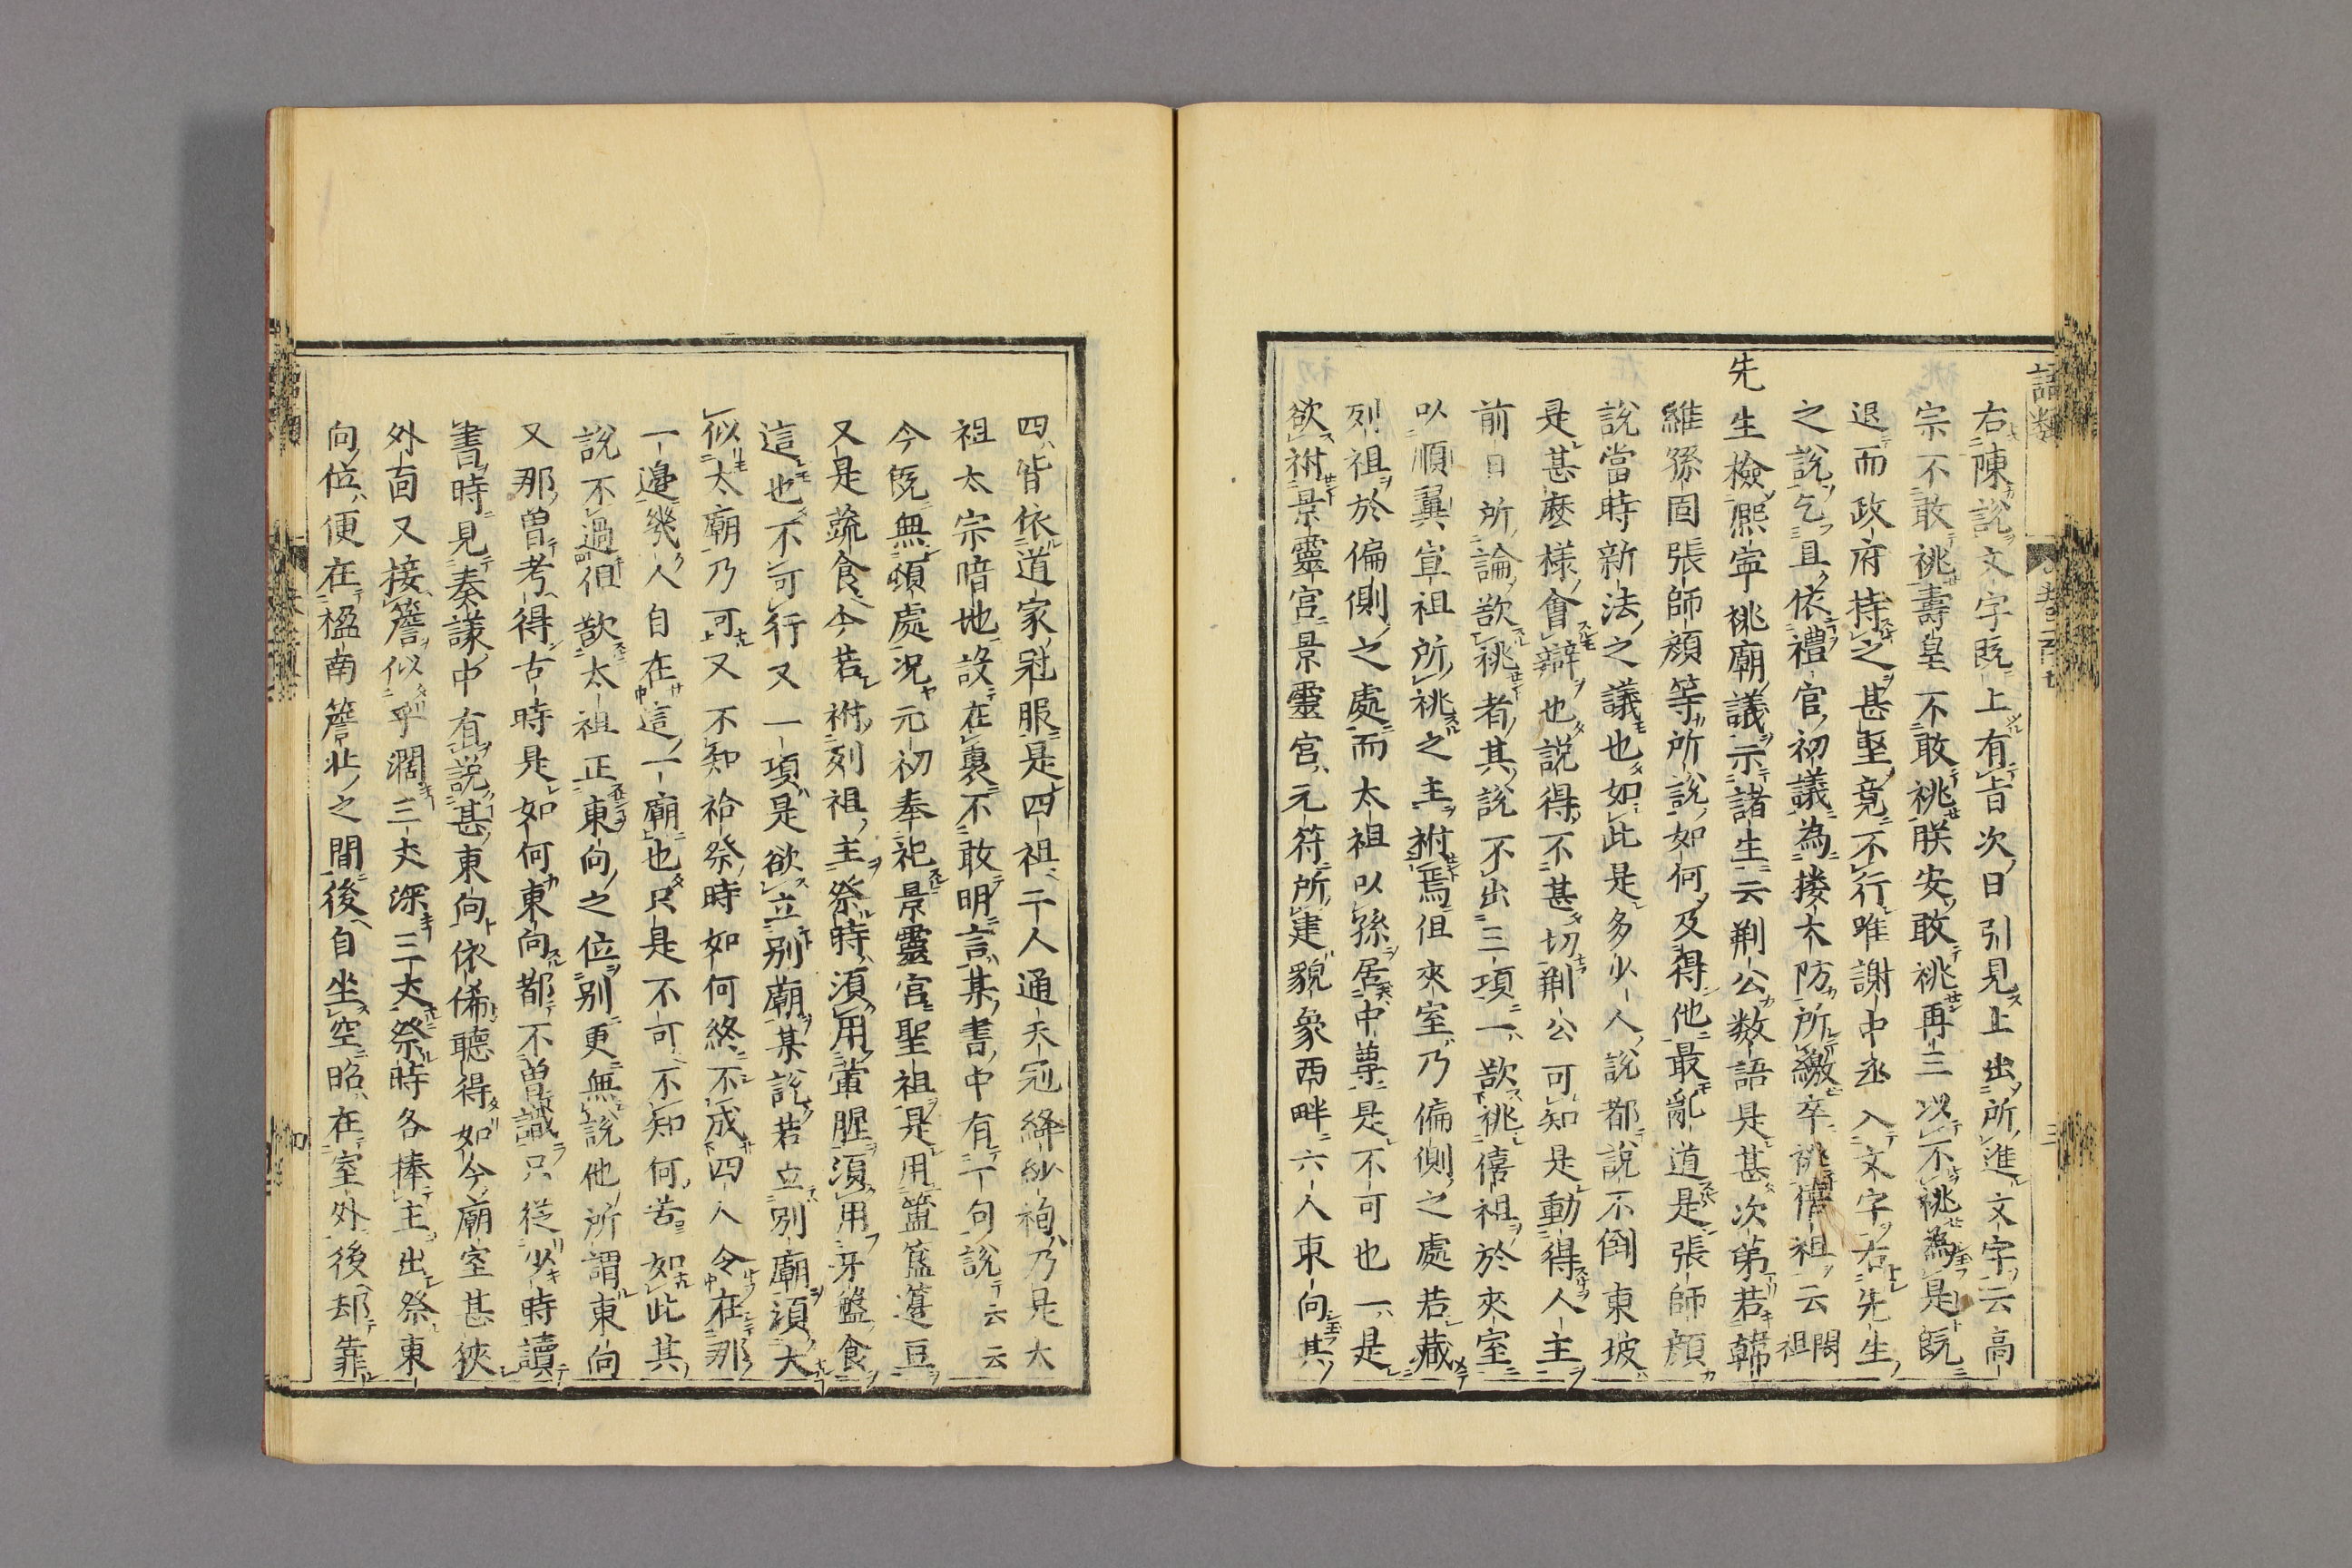 語類
卷一百七
三
右陳說文字既上有旨次日引見上出所進文字云高
宗不敢祧壽皇不敢祧朕安敢祧再三以不祧為是既
退而政府持之甚堅竟不行唯謝中丞入文字右先生
之說乞且依禮官初議為樓大防所繳卒祧僖祖云閎祖
先生檢熙寧祧廟議示諸生云荆公數語是甚次第若韓
維孫固張師顏等所說如何及得他最亂道是張師顏
說當時新法之議也如此是多少人說都說不倒東坡
是甚麼樣會辯也說得不甚切荆公可知是動得人主
前日所論欲祧者其說不出三項一欲祧僖祖於夾室
以順翼宣祖所祧之主祔焉但夾室乃偏側之處若藏
列祖於偏側之處而太祖以孫居中尊是不可也一是
欲祔景靈宮景靈宮元符所建貌象西畔六人東向其
四皆依道家冠服是四祖二人通天冠絳紗袍乃是太
祖太宗暗地設在裏不敢明言某書中有一句說云云
今既無頓處況元初奉祀景靈宮聖祖是用簠簋籩豆
又是蔬食今若祔列祖主祭時須用葷腥須用牙盤食
這也不可行又一項是欲立別廟某說若立別廟須大
似太廟乃可又不知祫祭時如何終不成四人令在那
一邊幾人自在這一廟也只是不可不知何苦如此其
說不過但欲太祖正東向之位別更無說他所謂東向
又那曾考得古時是如何東向都不曾識只從少時讀
書時見奏議中有說甚東向依俙聽得如今廟室甚狹
外面又接簷似乎濶三丈深三丈祭時各捧主出祭東
向位便在楹南簷北之間後自坐空昭在室外後却靠